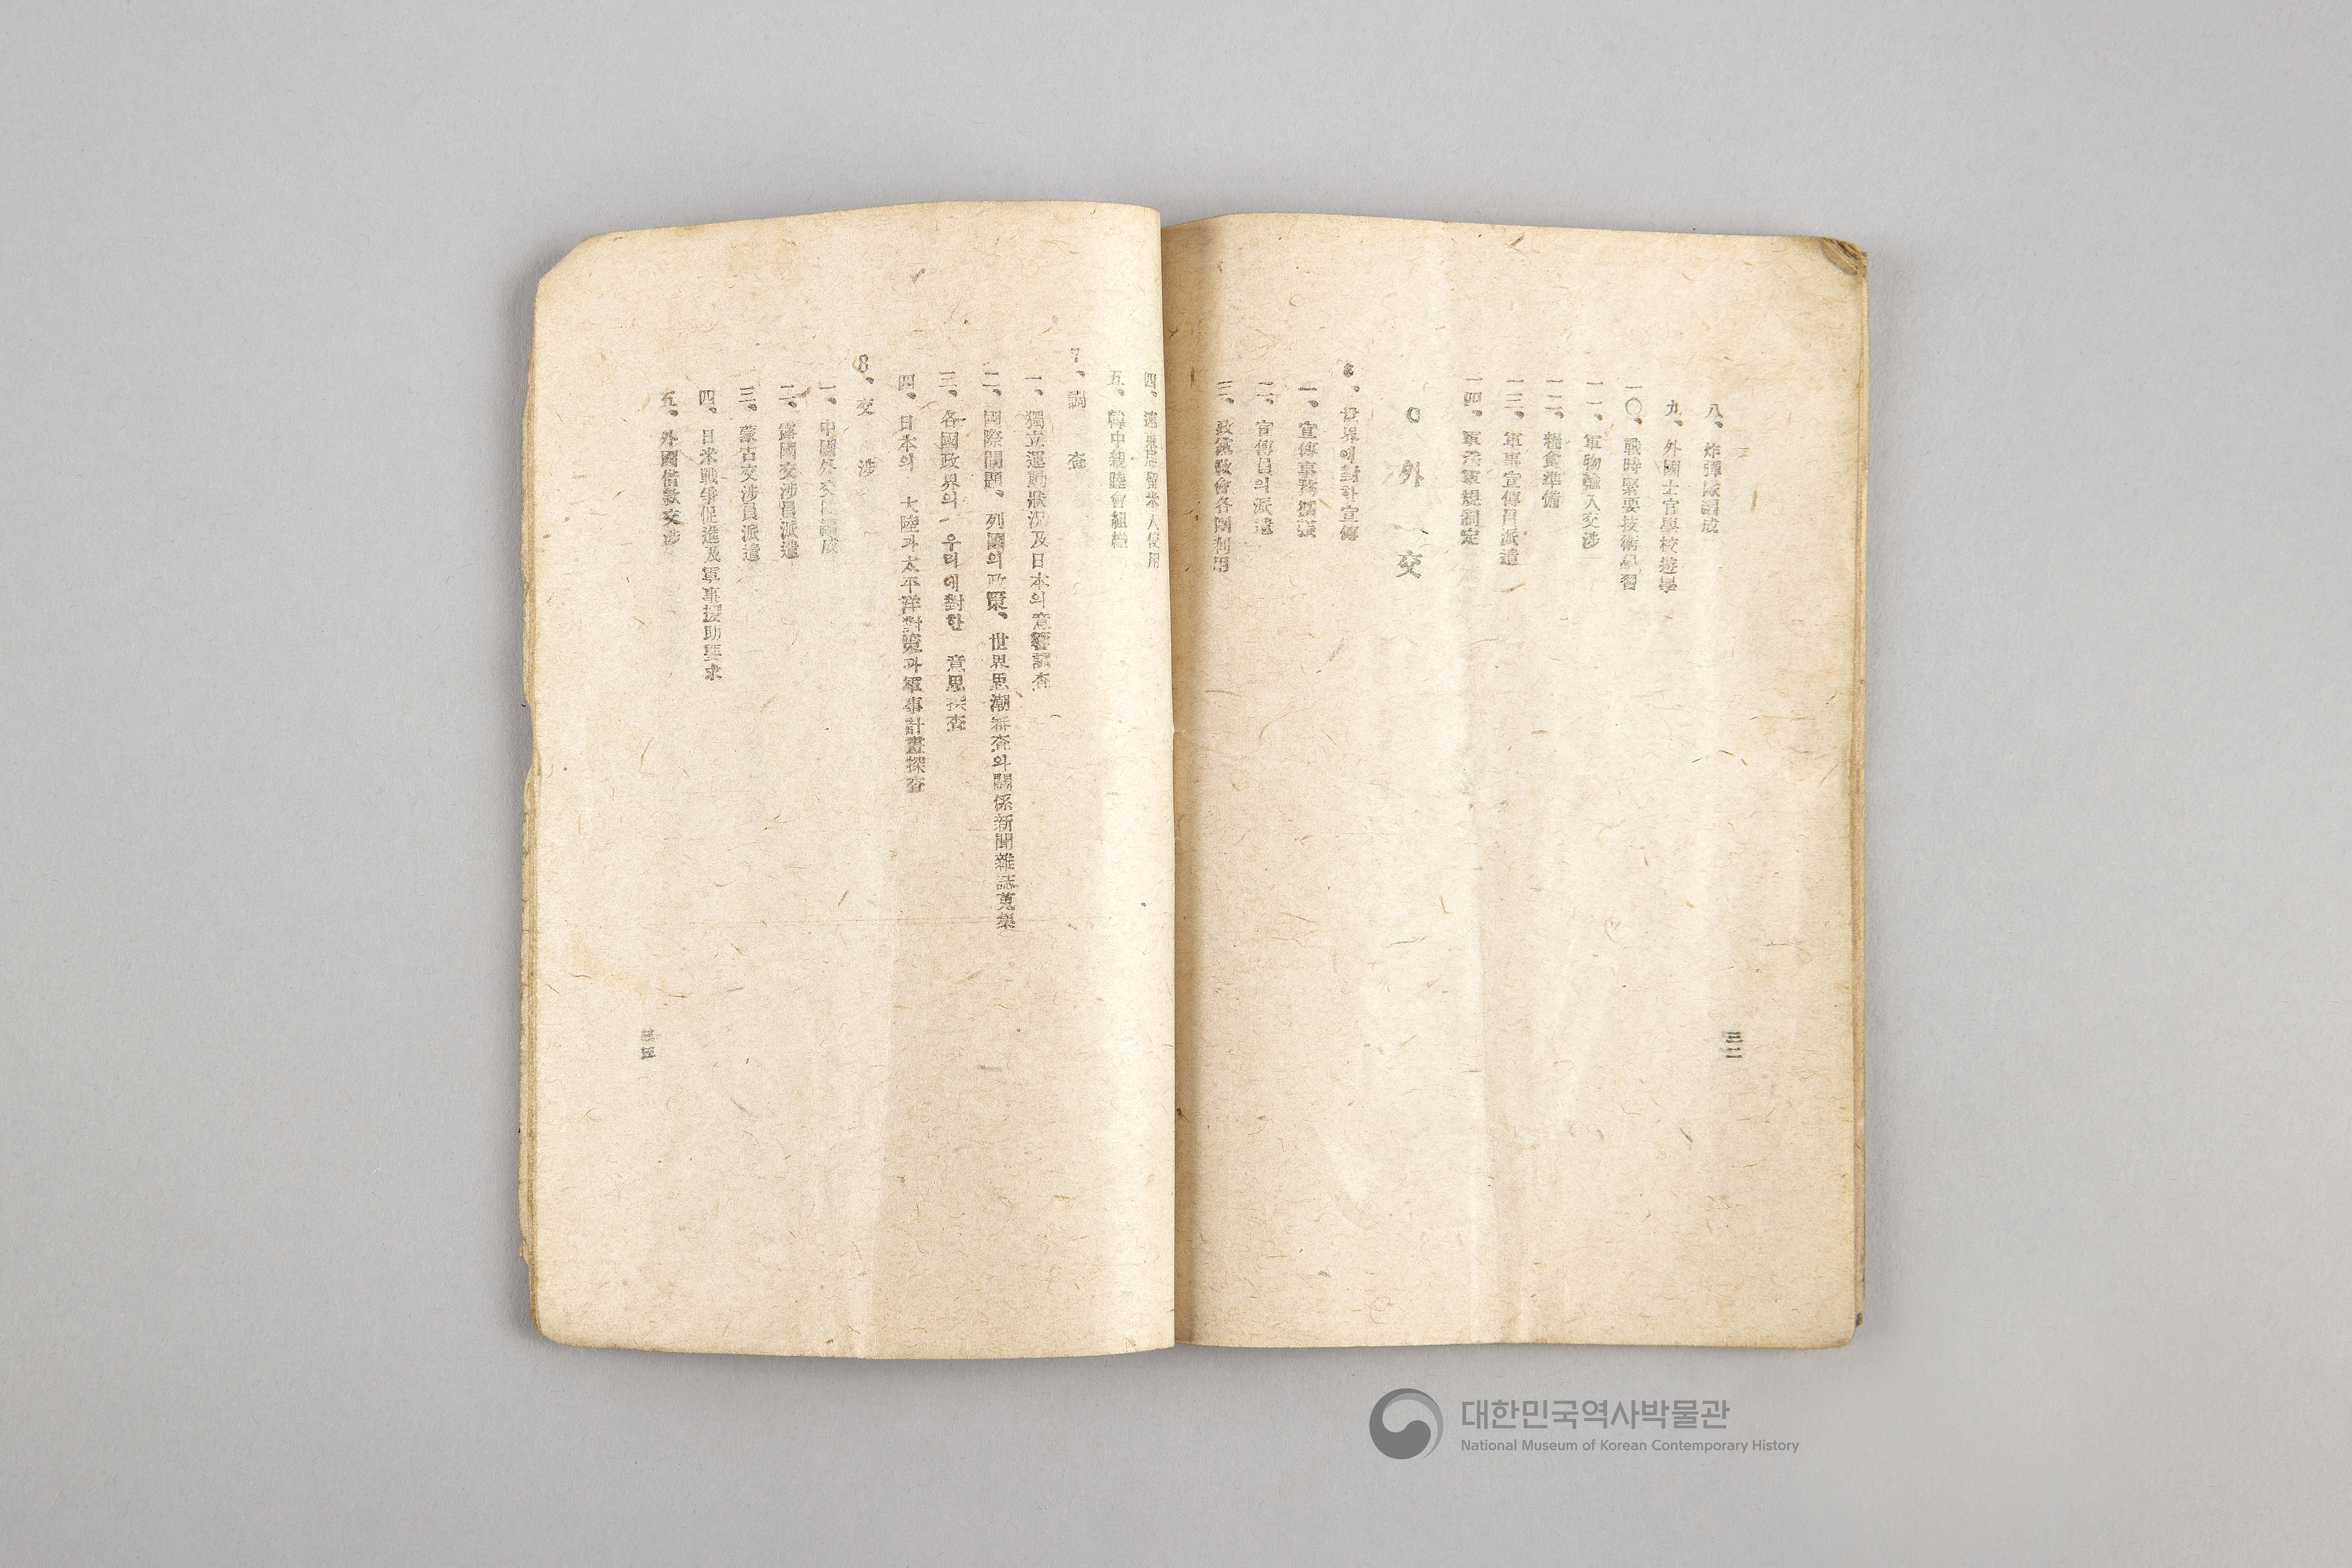 八、炸彈隊編成
九、外國士官學校遊學
一〇、戰時緊要技術學習
一一、軍物輸入交涉
一二、糧食準備
一三、軍事宣傳員派遣
一四、軍法軍規制定
C 外交
6、世界에對한宣傳
一、宣傳事務擴張
二、宣傳員의派遣
三、政黨敎會各團利用
三二
四、遠東居留米人使用
五、韓中親睦會組織
7、調査
一、獨立運動狀況及日本의意響調査
二、國際問題、列國의政策、世界思潮審査와關係新聞雜誌蒐集
三、各國政界의 우리에對한 意思探査
四、日本의 大陸과太平洋對策과軍事計畫探査
8、交涉
一、中國外交 成
二、露國交涉員派遣
三、蒙古交涉員派遣
四、日米戰爭促進及軍事援助要求
五、外國借款交涉
대한민국역사박물관
National Museum of Korean Contemporary History